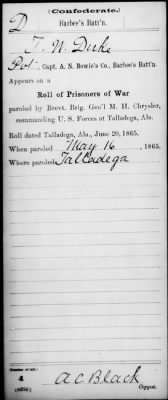 (Confederate.)
D Barbee's Batt'n.
T. N. Duke
Pvt, Capt. A. N. Bowie's Co., Barbee's Batt'n.
Appears on a
Roll of Prisoners of War
paroled by Brevt. Brig. Gen'l M. H. Chrysler,
commanding U. S. Forces at Talladega, Ala.
Roll dated Talladega, Ala., June 20, 1865.
When paroled May 16, 1865.
Where paroled Talladega
Number of roll:
4
A C Black
Copyist.